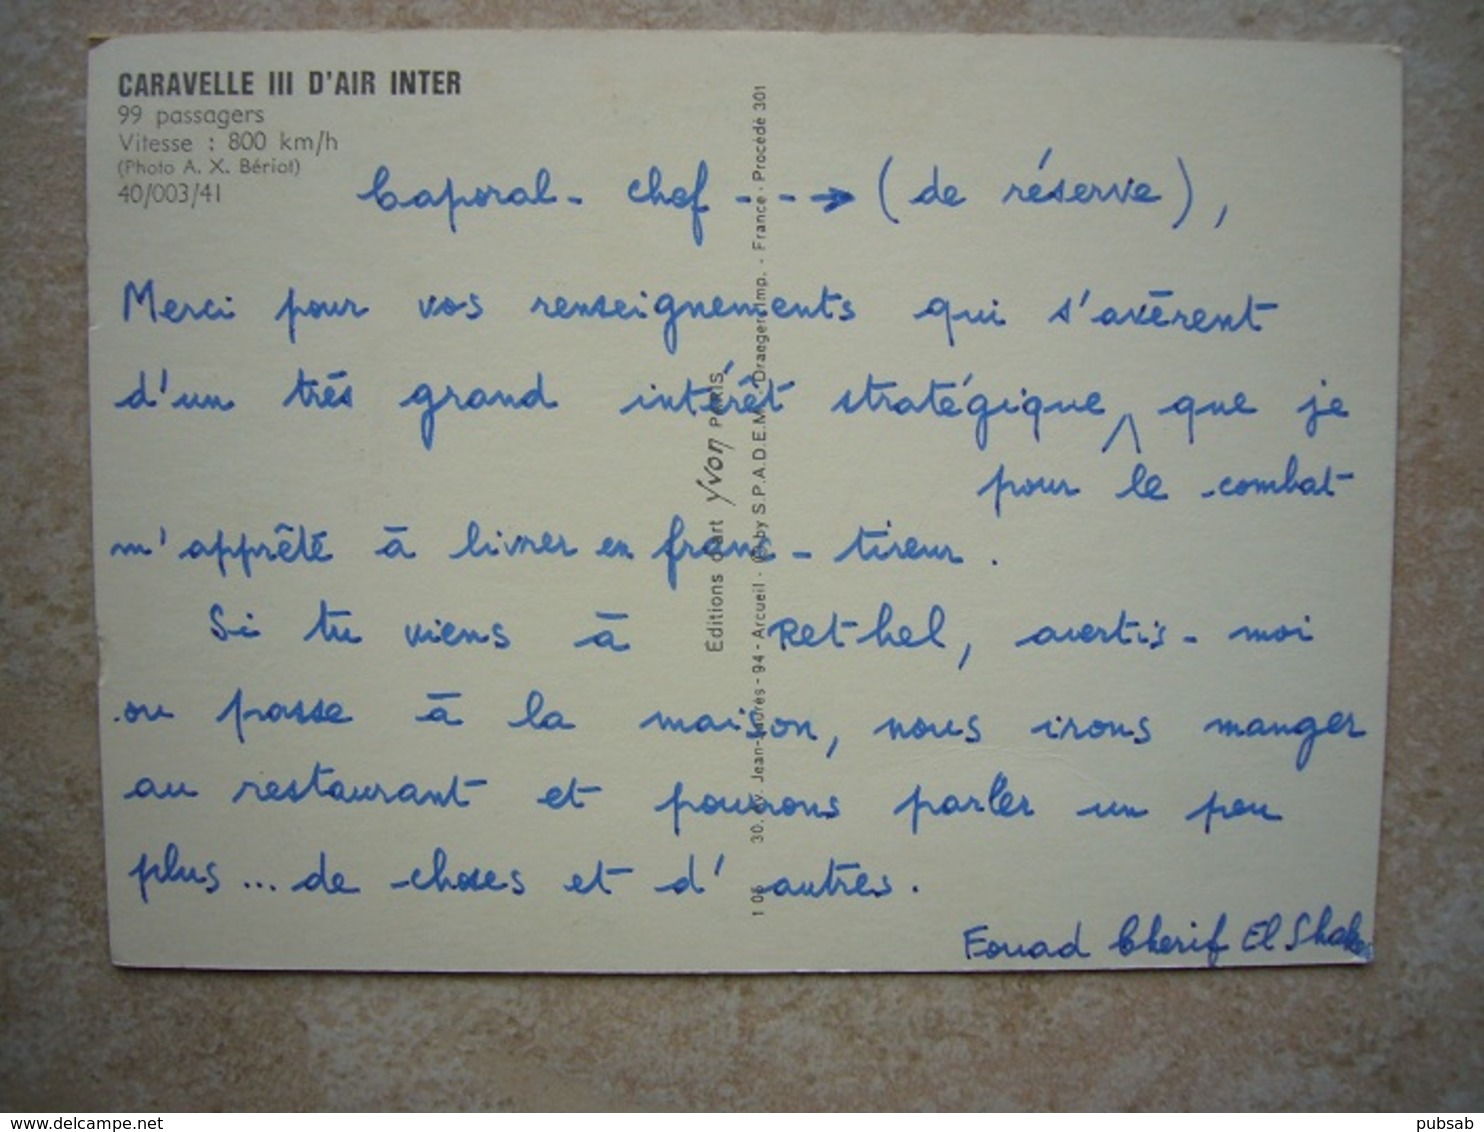 CARAVELLE III D'AIR INTER
99 passagers
Vitesse : 800 km/h
(Photo A. X. Bériot)
40/003/41
Caporal-chef ---→ (de réserve),
Merci pour vos renseignements qui s'avèrent
d'un très grand intérêt stratégique ⋀ que je
pour le combat
m'apprête à livrer en franc-tireur.
Si tu viens à Rethel, avertis-moi
ou passe à la maison, nous irons manger
au restaurant et pourrons parler un peu
plus... de choses et d'autres.
Fouad Cherif El Shake
Éditions d'art Yvon PARIS
30, Av. Jean-Jaurès - 94 - Arcueil - by S.P.A.D.E.M. - Draeger Imp. - France - Procédé 301
pubsab